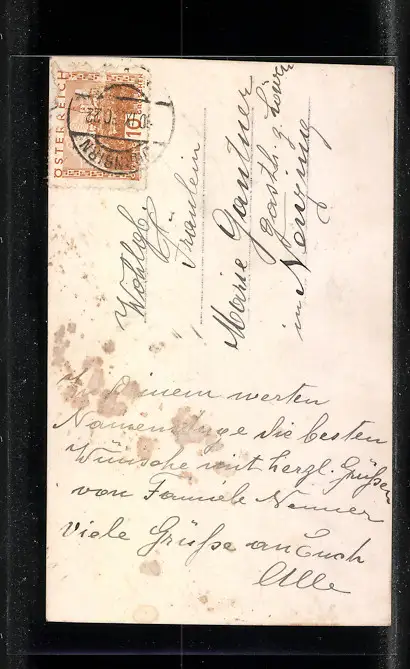 ÖSTERREICH
10
Wohlgb.
Fräulein
Marie Gantner
gasth. z. Löwe
in Nenzing
Zu Deinem werten
Namenstage die besten
Wünsche mit herzl. Grüßen
von Familie Nenner
Viele Grüße an Euch
Alle